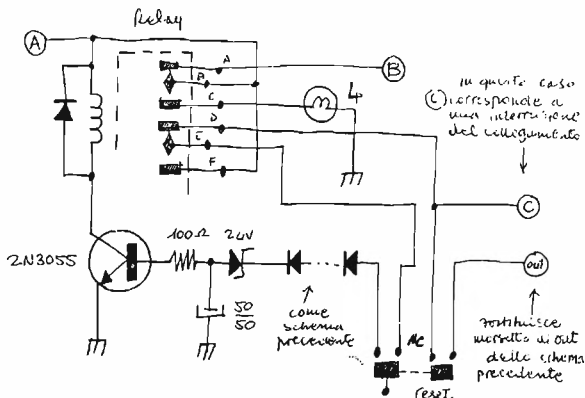 Relay
A
A
B
B
C
m
4
D
E
F
in questo caso
C corrisponde a
una interruzione
del collegamento
C
2N3055
100Ω
24V
50
50
come
schema
precedente
NC
reset
out
sostituisce
morsetto di out
dello schema
precedente